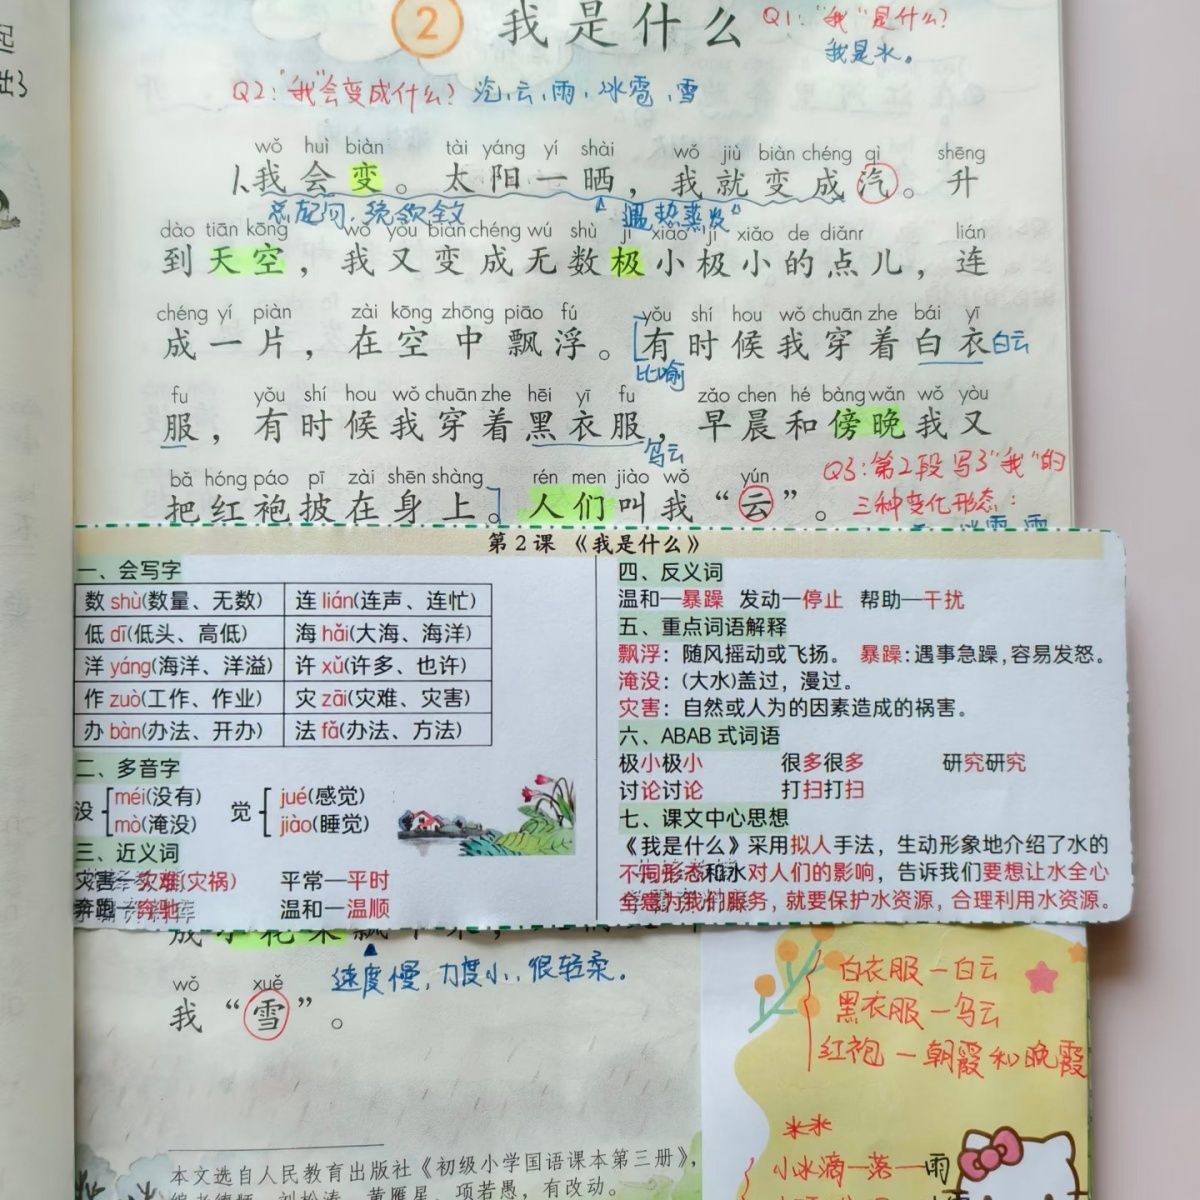 起
出了
2 我是什么
Q1:"我"是什么?
我是水。
Q2:"我"会变成什么? 汽、云、雨、冰雹、雪
wǒ huì biàn tài yáng yí shài wǒ jiù biàn chéng qì shēng
1、我会变。太阳一晒，我就变成汽。升
总起句，统领全文 遇热蒸发
dào tiān kōng wǒ yòu biàn chéng wú shù jí xiǎo jí xiǎo de diǎnr lián
到天空，我又变成无数极小极小的点儿，连
chéng yí piàn zài kōng zhōng piāo fú yǒu shí hou wǒ chuān zhe bái yī
成一片，在空中飘浮。有时候我穿着白衣
白云
比喻
fu yǒu shí hou wǒ chuān zhe hēi yī fu zǎo chen hé bàng wǎn wǒ yòu
服，有时候我穿着黑衣服，早晨和傍晚我又
乌云
bǎ hóng páo pī zài shēn shàng rén men jiào wǒ yún
把红袍披在身上。人们叫我“云”。
Q3:第2段写了"我"的
三种变化形态:
第2课《我是什么》
一、会写字
数 shù(数量、无数) 连 lián(连声、连忙)
低 dī(低头、高低) 海 hǎi(大海、海洋)
洋 yáng(海洋、洋溢) 许 xǔ(许多、也许)
作 zuò(工作、作业) 灾 zāi(灾难、灾害)
办 bàn(办法、开办) 法 fǎ(办法、方法)
二、多音字
没 méi(没有) mò(淹没) 觉 jué(感觉) jiào(睡觉)
三、近义词
灾害—灾难(灾祸) 平常—平时
奔跑—奔驰 温和—温顺
四、反义词
温和—暴躁 发动—停止 帮助—干扰
五、重点词语解释
飘浮：随风摇动或飞扬。 暴躁：遇事急躁,容易发怒。
淹没：(大水)盖过，漫过。
灾害：自然或人为的因素造成的祸害。
六、ABAB 式词语
极小极小 很多很多 研究研究
讨论讨论 打扫打扫
七、课文中心思想
《我是什么》采用拟人手法，生动形象地介绍了水的
不同形态和水对人们的影响，告诉我们要想让水全心
全意为我们服务，就要保护水资源，合理利用水资源。
速度慢，力度小，很轻柔。
wǒ xuě
我“雪”。
白衣服—白云
黑衣服—乌云
红袍—朝霞和晚霞
小水滴—落—雨
本文选自人民教育出版社《初级小学国语课本第三册》，